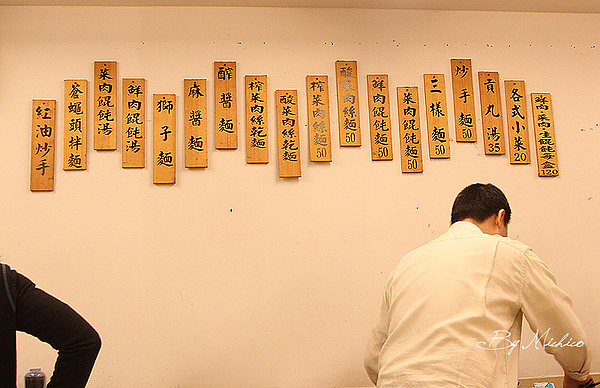 紅油炒手
蒼蠅頭拌麵
菜肉餛飩湯
鮮肉餛飩湯
獅子麵
麻醬麵
酢醬麵
榨菜肉絲乾麵
酸菜肉絲乾麵
榨菜肉絲麵 50
酸菜肉絲麵 50
鮮肉餛飩麵 50
菜肉餛飩麵 50
二樣麵 50
炒手 50
貢丸湯 35
各式小菜 20
120
By Michico